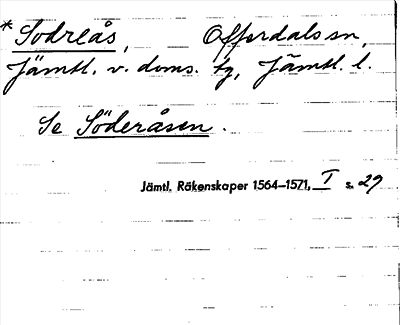 * Sodreås, Offerdals sn,
Jämtl. v. doms. tg, Jämtl. l.
Se Söderåsen.
Jämtl. Räkenskaper 1564–1571, I s. 29